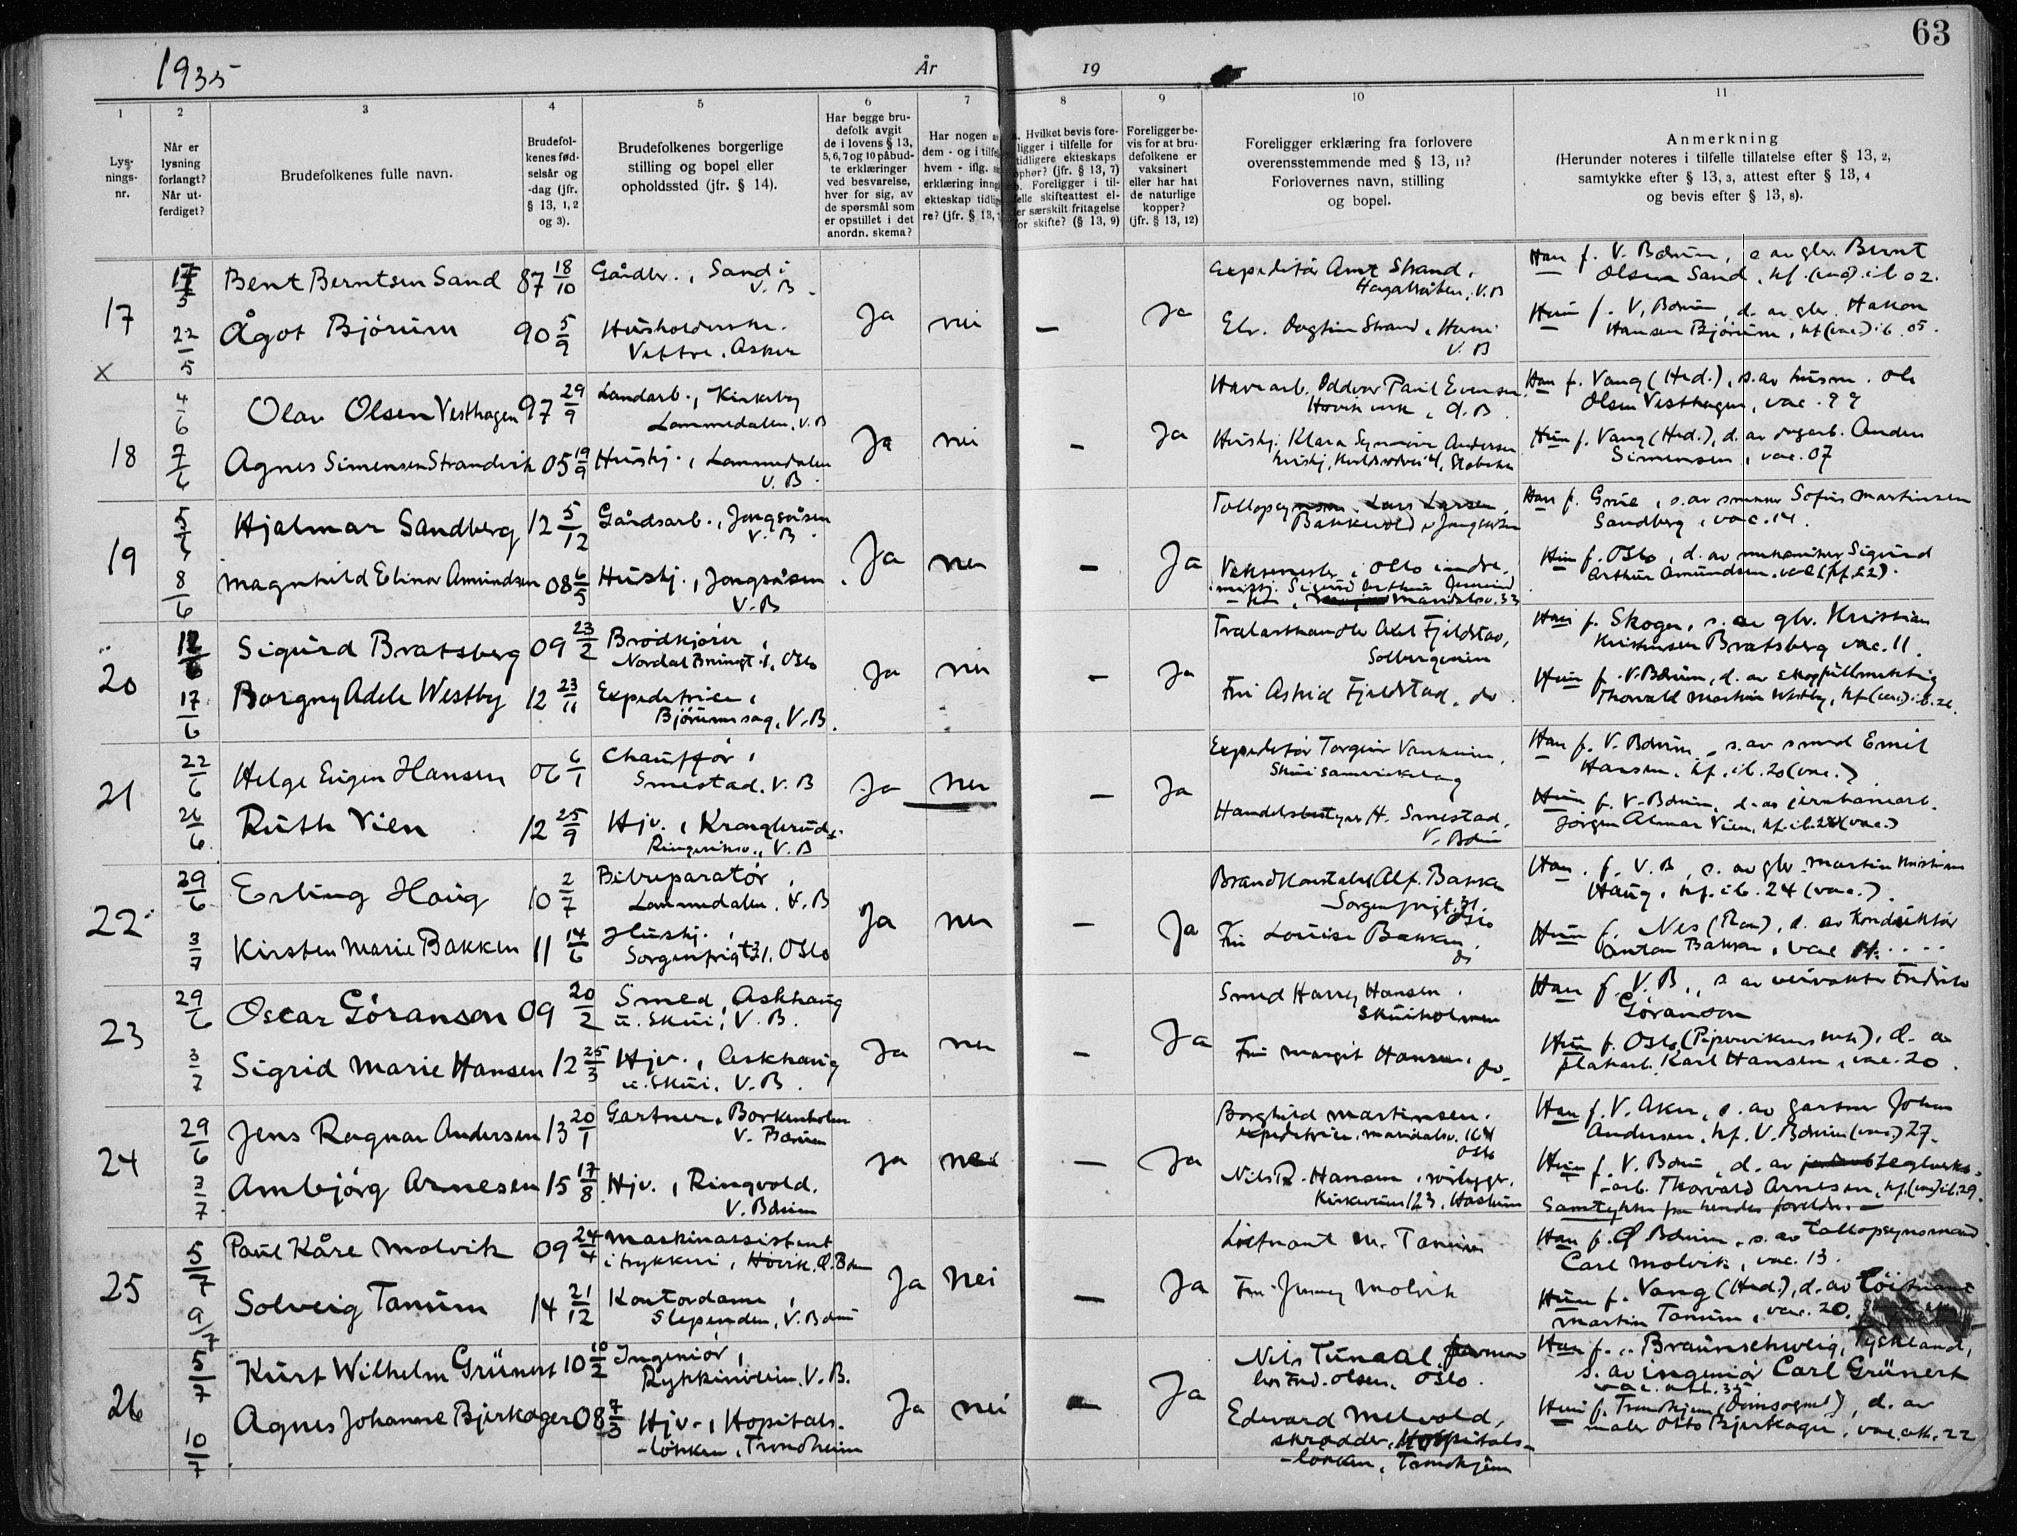 63
1935
År
19
1
2
3
4
5
6
7
8
9
10
11
Lys-
nings-
nr.
Når er
lysning
forlangt?
Når ut-
ferdiget?
Brudefolkenes fulle navn.
Brudefol-
kenes fød-
selsår og
-dag (jfr.
§ 13, 1, 2
og 3).
Brudefolkenes borgerlige
stilling og bopel eller
opholdssted (jfr. § 14).
Har begge bru-
defolk avgit
de i lovens § 13,
5, 6, 7 og 10 påbud-
te erklæringer
ved besvarelse,
hver for sig, av
de spørsmål som
er opstillet i det
anordn. skema?
Har nogen
dem - og i tilf
hvem - iflg.
erklæring inng
ekteskap tidlig
re? (jfr. § 13,
Hvilket bevis fore-
ligger i tilfelle for
tidligere ekteskaps
ophør? (jfr. § 13, 7)
b. Foreligger i til-
felle skifteattest el-
ler særskilt fritagelse
for skifte? (§ 13, 9)
Foreligger be-
vis for at bru-
defolkene er
vaksinert
eller har hat
de naturlige
kopper?
(jfr. § 13, 12)
Foreligger erklæring fra forlovere
overensstemmende med § 13, 11?
Forlovernes navn, stilling
og bopel.
Anmerkning
(Herunder noteres i tilfelle tillatelse efter § 13, 2,
samtykke efter § 13, 3, attest efter § 13, 4
og bevis efter § 13, 8).
17
x
17/5
22/5
Bent Berntsen Sand 87 18/10
Ågot Bjørum 90 5/9
Gårdbr., Sand i
V. B.
Husholderske.
Vettre, Asker
Ja nei — Ja
Expeditør Arnt Strand,
V.B
Elv. Dagfin Strand, Hauri
V. B
Han f. V. Bærum, s. av gbr. Bernt
Olsen Sand, kf. (vac) i b. 02.
Hun f. V. Bærum, d. av gbr. Hakon
Hansen Bjørum, kf (vac.) i b. 05.
18
4/6
7/6
Olav Olsen Vesthagen 97 29/9
Agnes Simensen Strandvik 05 19/9
Landarb., Kirkeby
Lommedalen, V. B
Hushj., Lommedalen
V. B.
Ja nei — Ja
Havearb. Oddvar Paul Evensen
Høvik verk, Ø. B.
Hushj. Klara Synnøve Andersen
Han f. Vang (Hed.), s. av husm. Ole
Olsen Vesthagen, vac. 99
Hun f. Vang (Hed.), d. av dagarb. Anders
Simensen, vac. 07
19
5/6
8/6
Hjalmar Sandberg 12 5/12
Magnhild Elinor Amundsen 08 6/5
Gårdsarb., Jongsåsen
V. B.
Hushj., Jongsåsen.
V. B
Ja nei — Ja
Tollopsynsm. Lars Larsen,
Bakkevold, Jongsåsen
Sigurd Arthur
Maridalsv. 33
Han f. Grue, s. av Sofus Martinsen
Sandberg, vac. 14.
Hun f. Oslo, d. av mekaniker Sigurd
Arthur Amundsen, vac (kf. 22).
20
12/6
17/6
Sigurd Bratsberg 09 23/2
Borgny Adele Westby 12 23/11
Brødkjører,
Nordal Brunsgt. 1, Oslo
Expeditrice,
Bjørumssag, V. B.
Ja nei — Ja
Trælasthandler Axel Fjeldstad,
Solbergveien
Fru Astrid Fjeldstad, do
Han f. Skoger, s. av gbr. Kristian
Kristensen Bratsberg vac. 11.
Hun f. V. Bærum, d. av skogfullmektig
Thorvald Martin Westby, kf (vac.) i b. 26.
21
22/6
26/6
Helge Eugen Hansen 06 6/1
Ruth Vien 12 25/9
Chauffør,
Smestad, V. B
Hjv., Kroglerud,
Ringeriksv., V. B
Ja nei — Ja
Expeditør Torgeir
Skui samvirkelag
Handelsbestyrer H. Smestad,
V. Bærum
Han f. V. Bærum, s. av smed Emil
Hansen, kf. i b. 20 (vac.)
Hun f. V. Bærum, d. av jernbanearb.
Jørgen Almar Vien, kf. i b. 28 (vac.)
22
29/6
3/7
Erling Haug 10 2/7
Kirsten Marie Bakken 11 14/6
Bilreparatør,
Lommedalen, V. B
Hushj.,
Sorgenfrigt. 31, Oslo
Ja nei — Ja
Brandkonstabel Alf. Bakken
Sorgenfrigt. 31.
Oslo
Fru Louise Bakken,
do
Han f. V. B, s. av gbr. Martin Kristian
Haug, kf. i b. 24 (vac.)
Hun f. Nes (Rom), d. av konduktør
Anton Bakken, vac 11.
23
29/6
3/7
Oscar Göranson 09 20/2
Sigrid Marie Hansen 12 25/3
Smed, Askhaug
u. Skui, V. B.
Hjv., Askhaug
u. Skui, V. B.
Ja nei — Ja
Smed Harry Hansen.
Skuiholmen
Fru Margit Hansen, do
Han f. V. B., s. av veivokter Fredrik
Göranson
Hun f. Oslo (Pipervikens mh), d. av
platearb. Karl Hansen, vac. 20.
24
29/6
3/7
Jens Ragnar Andersen 13 20/1
Arnbjørg Arnesen 15 17/8
Gartner, Borkenholm
V. Bærum
Hjv., Ringvold.
V. Bærum
Ja nei — Ja
Borghild Martinsen.
expeditrice, Maridalsv. 164
Oslo
Nils R. Hansen, rørlegger,
Kirkeveien 123, Haslum
Han f. V. Aker, s. av gartner Johan
Andersen, kf. V. Bærum (vac.) 27.
Hun f. V. Bærum, d. av teglverks-
arb. Thorvald Arnesen, kf. (vac) i b. 29.
Samtykke fra hendes foreldre. —
25
5/7
9/7
Paul Kåre Molvik 09 24/4
Solveig Tanum 14 21/12
Maskinassistent
i trykkeri, Høvik, Ø. Bærum
Kontordame,
Slependen, V. Bærum
Ja nei — Ja
Løitnant M. Tanum
Fru Jenny Molvik
Han f. Ø Bærum, s. av Tollopsynsmand
Carl Molvik, vac. 13.
Hun f. Vang (Hed.), d. av Løitnant
Martin Tanum, vac. 20.
26
5/7
10/7
Kurt Wilhelm Grünert 10 10/2
Agnes Johanne Bjerkager 08 7/3
Ingeniør,
Rykkinveien, V. B.
Hjv., Hospitals-
-løkken, Trondheim
Ja nei — Ja
Nils Tunaal,
Oslo.
Edvard Melvold,
skrædder, Hospitals-
-løkken, Trondhjem
Han f. i Braunschweig, Tyskland,
s. av ingeniør Carl Grünert
vac. att. 35
Hun f. Trondhjem (Domsognet), d. av
maler Otto Bjerkager, vac. att. 22